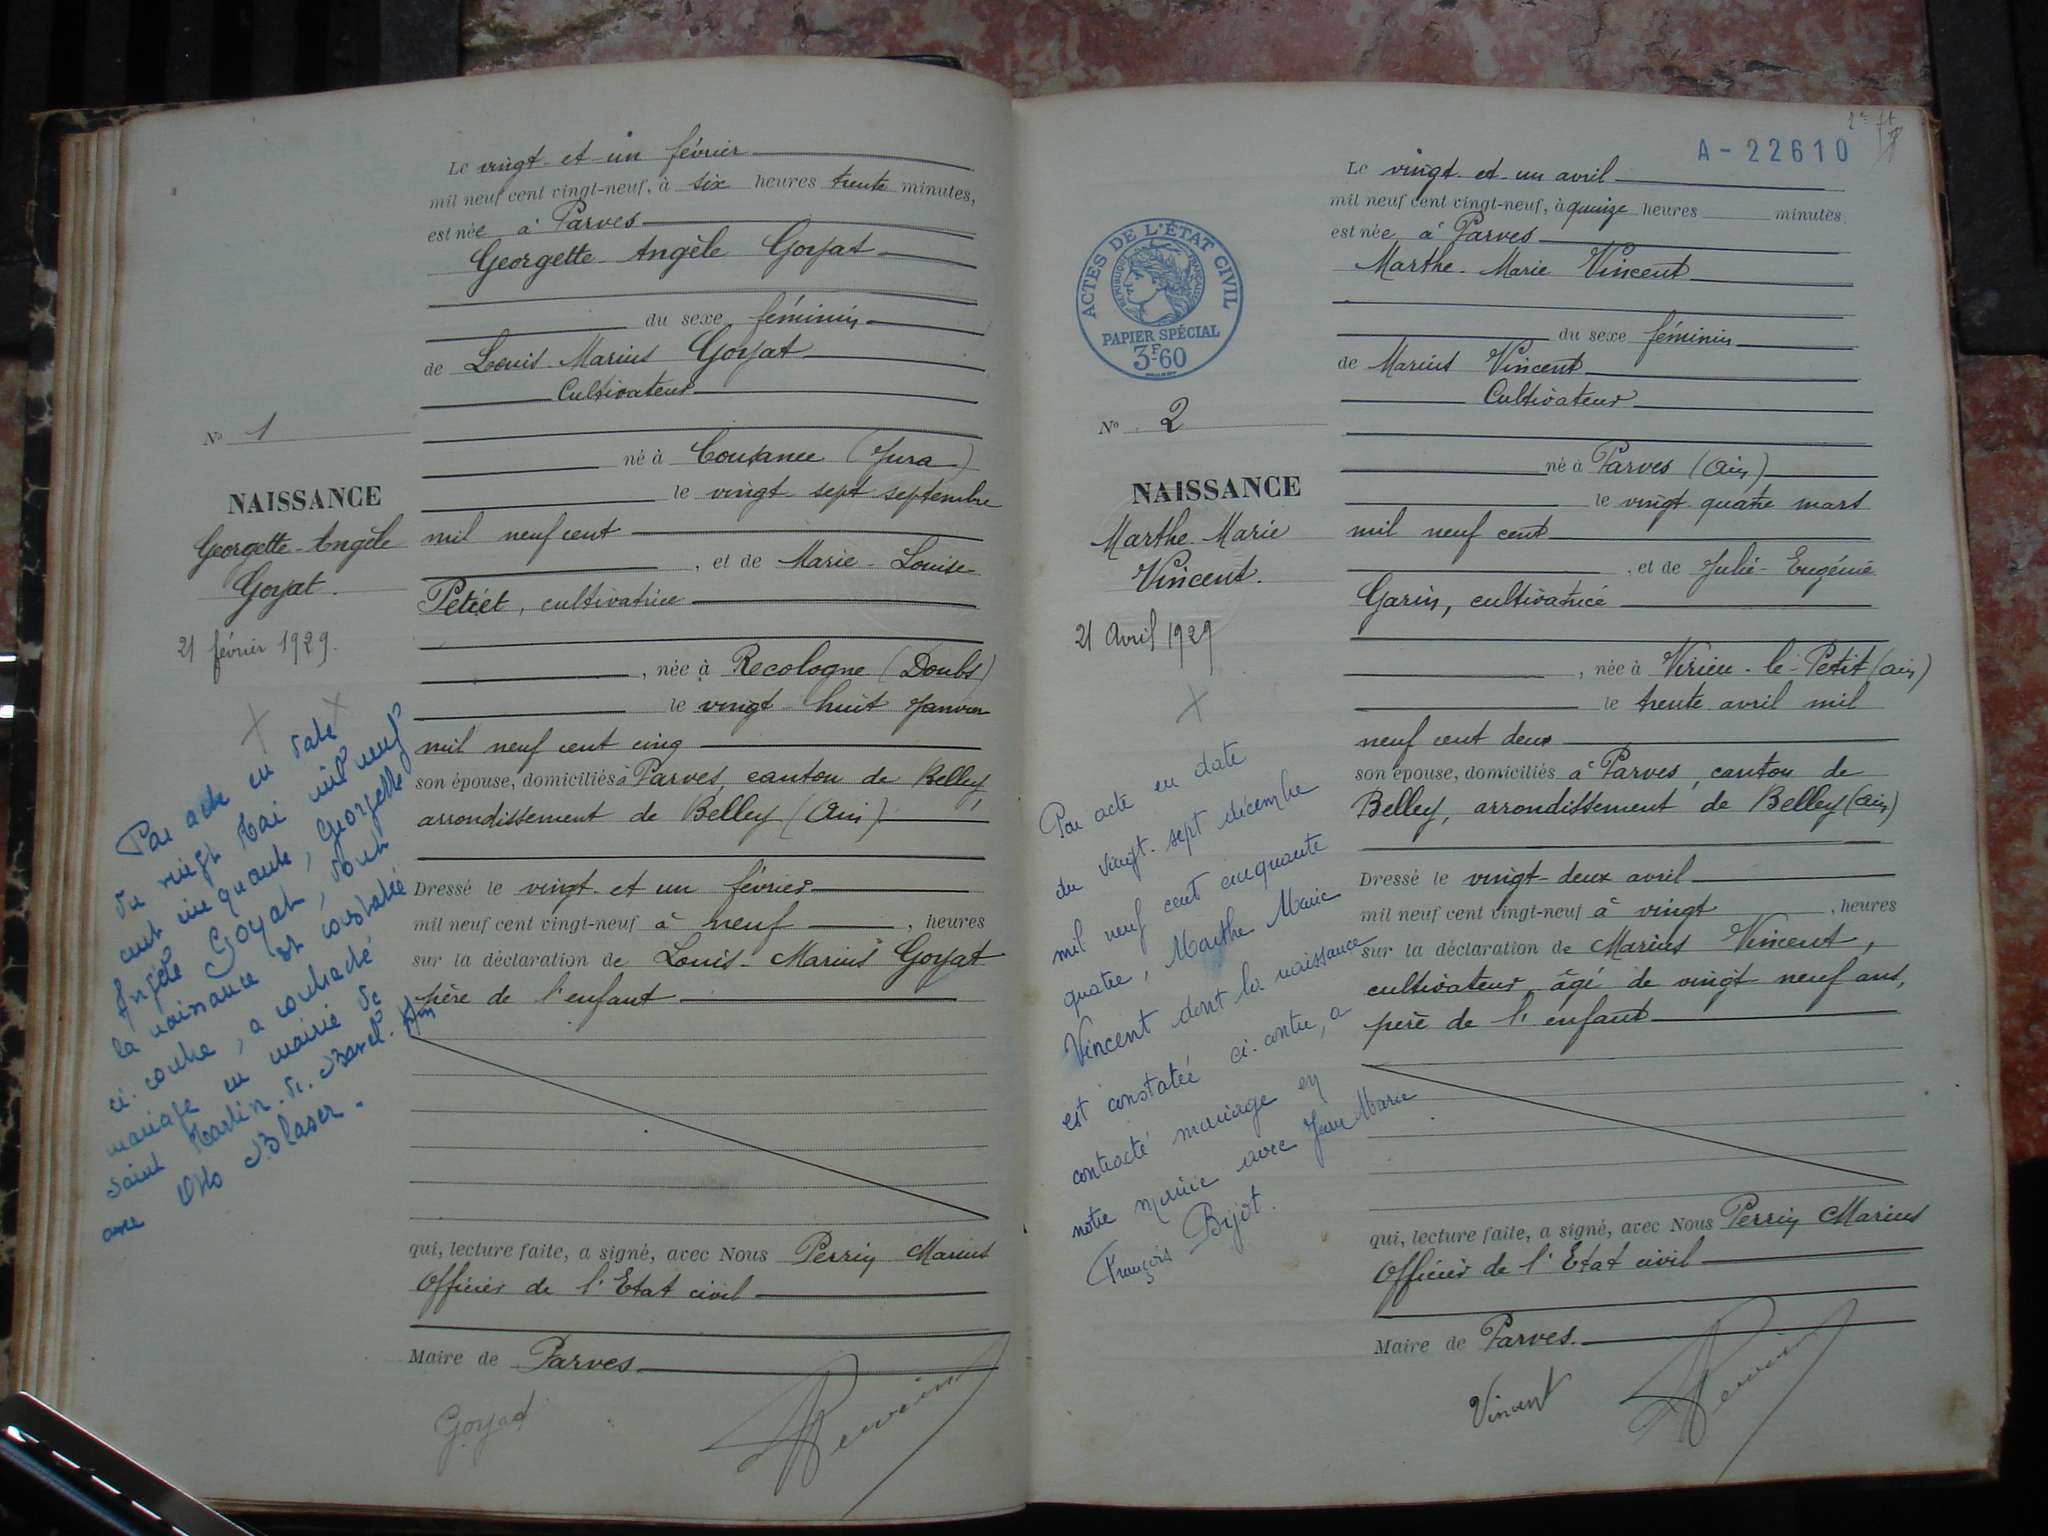 Le vingt et un février
mil neuf cent vingt-neuf, à six heures trente minutes,
est née à Parves
Georgette Angèle Goyat
du sexe féminin
de Louis Marius Goyat
Cultivateur
né à Cousance (Jura)
le vingt sept septembre
mil neuf cent
, et de Marie-Louise
Petiet, cultivatrice
, née à Recologne (Doubs)
le vingt huit Janvier
mil neuf cent cinq
son épouse, domiciliés à Parves, canton de Belley,
arrondissement de Belley (Ain)
Dressé le vingt et un février
mil neuf cent vingt-neuf à neuf, heures
sur la déclaration de Louis-Marius Goyat
père de l'enfant
qui, lecture faite, a signé, avec Nous Perrin Marius
Officier de l'Etat civil
Maire de Parves
Goyat
Perrin
No 1
NAISSANCE
Georgette-Angèle
Goyat.
21 février 1929.
Par acte en date
du vingt Mai mil neuf
cent cinquante, Georgette
Angèle Goyat, dont
la naissance est constatée
ci-contre, a contracté
mariage en mairie de
Saint Martin-de-Bavel. Ain
avec Otto Blaser.
A-22610
Le vingt et un avril
mil neuf cent vingt-neuf, à quinze heures minutes
est née à Parves
Marthe-Marie Vincent
du sexe féminin
de Marius Vincent
Cultivateur
né à Parves (Ain)
le vingt quatre mars
mil neuf cent
, et de Julie-Eugénie
Garin, cultivatrice
, née à Virieu-le-Petit (Ain)
le trente avril mil
neuf cent deux
son épouse, domiciliés à Parves, canton de
Belley, arrondissement de Belley (Ain)
Dressé le vingt-deux avril
mil neuf cent vingt-neuf à vingt, heures
sur la déclaration de Marius Vincent,
cultivateur, âgé de vingt neuf ans,
père de l'enfant
qui, lecture faite, a signé, avec Nous Perrin Marius
Officier de l'Etat civil
Maire de Parves.
Vincent
Perrin
ACTES DE L'ÉTAT CIVIL
RÉPUBLIQUE FRANÇAISE
PAPIER SPÉCIAL
3F60
No 2
NAISSANCE
Marthe-Marie
Vincent.
21 Avril 1929
Par acte en date
du vingt-sept décembre
mil neuf cent cinquante
quatre, Marthe Marie
Vincent dont la naissance
est constatée ci-contre, a
contracté mariage en
notre mairie avec Jean Marie
François Bijot.